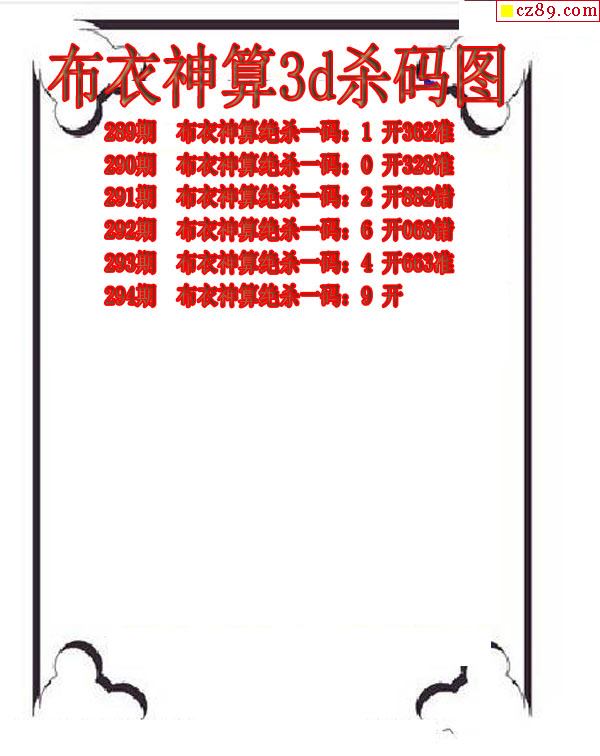 cz89.com
布衣神算3d杀码图
289期 布衣神算绝杀一码：1 开362准
290期 布衣神算绝杀一码：0 开328准
291期 布衣神算绝杀一码：2 开882错
292期 布衣神算绝杀一码：6 开068错
293期 布衣神算绝杀一码：4 开663准
294期 布衣神算绝杀一码：9 开